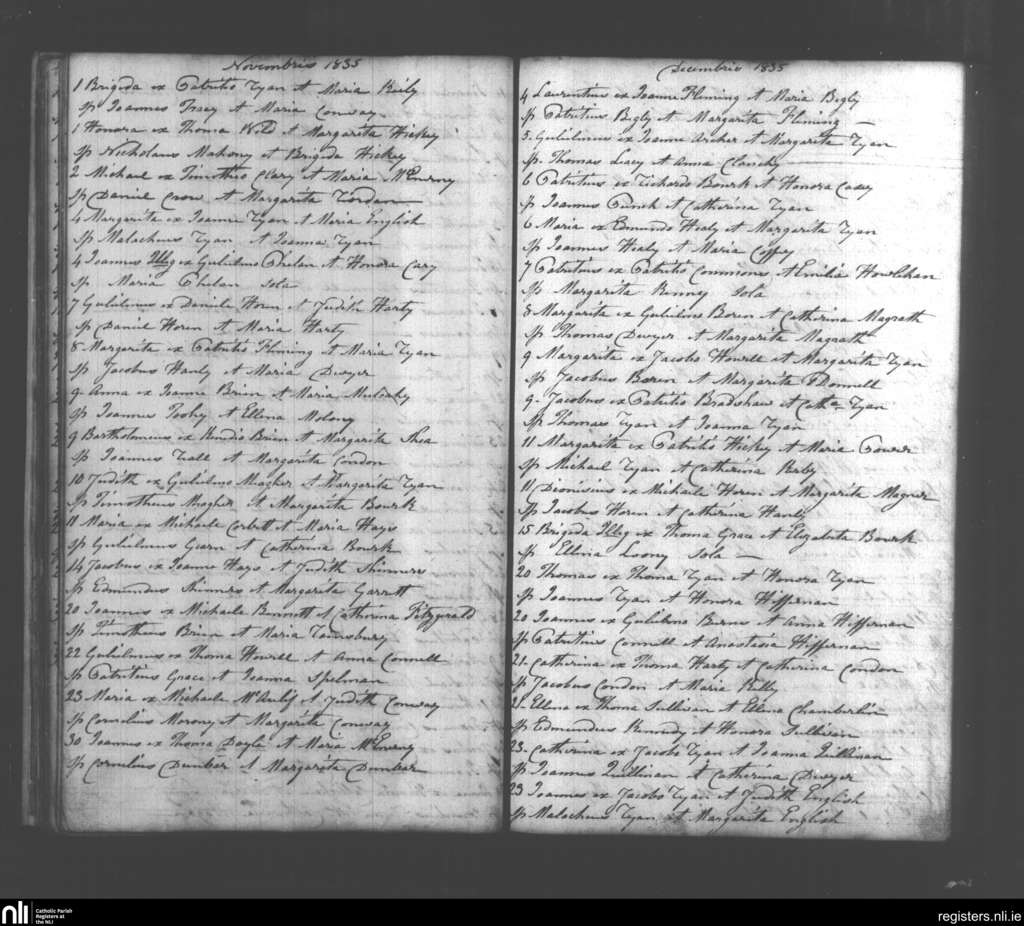 Novembris 1835
1 Brigida ex Patritio Ryan et Maria Kiely
Sp Joannes Tracy et Maria Conway
1 Honora ex Thoma et Margarita Hickey
Sp Nicholaus Mahony et Brigida Hickey
2 Michael ex Timotheo Clary et Maria McEnerny
Sp Daniel Crow et Margarita Riordan
4 Margarita ex Joanne Ryan et Maria English
Sp Malacheus Ryan et Joanna Ryan
4 Joannes Illeg ex Gulielmo Phelan et Honora Cary
Sp Maria Phelan sola
7 Gulielmus ex Daniele Horen et Judith Harty
Sp Daniel Horen et Maria Harty
8 Margarita ex Patritio Fleming et Maria Ryan
Sp Jacobus Hanly et Maria Dwyer
9 Anna ex Joanne Brien et Maria Mulcahy
Sp Joannes Toohy et Ellena Molony
9 Bartholomeus ex Brien et Margarita Shea
Sp Joannes et Margarita Condon
10 Judith ex Gulielmo Meagher et Margarita Ryan
Sp Timotheus Meagher et Margarita Bourk
11 Maria ex Michaele Corbett et Maria Hays
Sp Gulielmus et Catherina Bourk
14 Jacobus ex Joanne Hays et Judith Skinners
Sp Edmundus Skinners et Margarita Garrett
20 Joannes ex Michaele Bennett et Catherina Fitzgerald
Sp Timotheus Brien et Maria Tounsbury
22 Gulielmus ex Thoma Howell et Anna Connell
Sp Patritius Grace et Joanna Spelman
23 Maria ex Michaele McAulif et Judith Conway
Sp Cornelius Morony et Margarita Conway
30 Joannes ex Thoma Doyle et Maria McEnery
Sp Cornelius Dunbar et Margarita Dunbar
Decembris 1835
4 Laurentius ex Joanne Fleming et Maria Bigly
Sp Patritius Bigly et Margarita Fleming
5. Gulielmus ex Joanne Archer et Margarita Ryan
Sp. Thomas Lacy et Anna Clanchy
6 Patritius ex Richardo Bourk et Honora Casey
Sp Joannes et Catherina Ryan
6 Maria ex Edmundo Healy et Margarita Ryan
Sp Joannes Healy et Maria Coffey
7 Patritius ex Patritio Commons et Emilia Howlihan
Sp Margarita Kenney sola
8 Margarita ex Gulielmo Boren et Catherina Magrath
Sp Thomas Dwyer et Margarita Magrath
9 Margarita ex Jacobo Howell et Margarita Ryan
Sp Jacobus Boren et Margarita O'Donnell
9. Jacobus ex Patritio Bradshaw et Cath.a Ryan
Sp Thomas Ryan et Joanna Ryan
11 Margarita ex Patritio Hickey et Maria Power
Sp Michael Ryan et Catherina Raby
11 Dionisius ex Michaele Horen et Margarita Magner
Sp Jacobus Horen et Catherina Hanly
15 Brigida Illeg ex Thoma Grace et Elizabeta Bourk
Sp Ellena Loony sola
20 Thomas ex Thoma Ryan et Honora Ryan
Sp Joannes Ryan et Honora Hiffernan
20 Joannes ex Gulielmo Burns et Anna Hiffernan
Sp Patritius Connell et Anastasia Hiffernan
21. Catherina ex Thoma Harty et Catherina Condon
Sp Jacobus Condon et Maria Kelly
21 Ellena ex Thoma Sullivan et Ellena Chamberlin
Sp Edmundus Kennedy et Honora Sullivan
23. Catherina ex Jacobo Ryan et Joanna Quillinan
Sp Joannes Quillinan et Catherina Dwyer
23 Joannes ex Jacobo Ryan et Judith English
Sp Malacheus Ryan et Margarita English
nli
Catholic Parish
Registers at
the NLI
registers.nli.ie